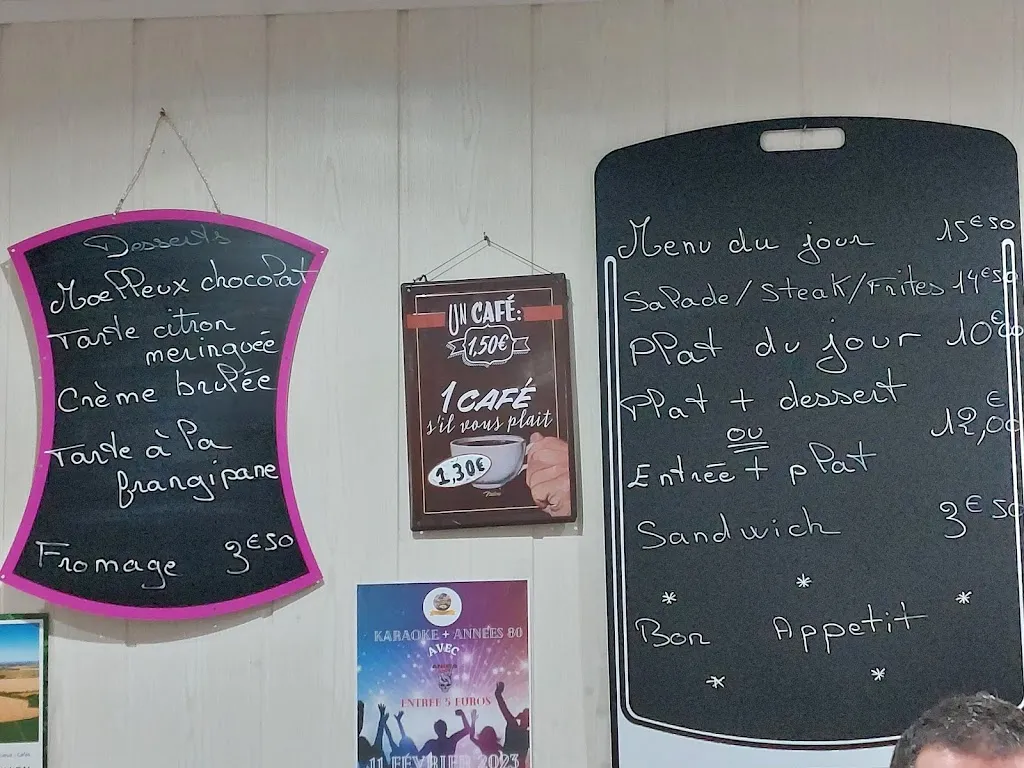 Desserts
Moelleux chocolat
Tarte citron
meringuée
Crème brulée
Tarte à la
frangipane
Fromage 3€50
UN CAFÉ:
1,50€
1 CAFÉ
s'il vous plait
1,30€
KARAOKE + ANNEES 80
AVEC
ENTREE 5 EUROS
11 FÉVRIER 2023
Menu du jour 15€50
Salade/Steak/Frites 14€50
Plat du jour 10€00
Plat + dessert
ou 12,€00
Entrée + plat
Sandwich 3€50
Bon Appetit